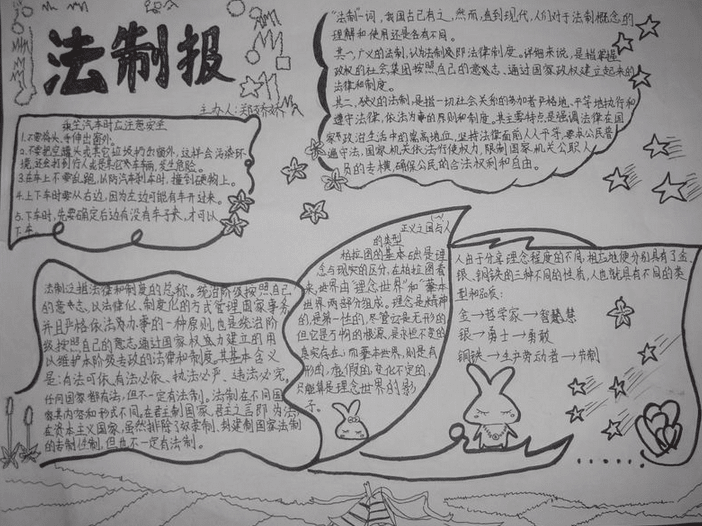 法制报
主办人:郑娇娇
我坐汽车时应注意安全
1.不要将头、手伸出窗外。
2.不要把空罐头或其它垃圾扔出窗外,这样会污染环
境,还会打到行人或是其它汽车车辆,发生危险。
3.在车上不要乱跑,以防汽车刹车时,撞到硬物上。
4.上下车时要从右边,因为左边可能有车开过来。
5.下车时,先要确定后边有没有车子来,才可以
下车。
“法制”一词,我国古已有之。然而,直到现代,人们对于法制概念的
理解和使用还是各有不同。
其一,广义的法制,认为法制即法律制度。详细来说,是指掌握
政权的社会集团按照自己的意志,通过国家政权建立起来的
法律和制度。
其二,狭义的法制,是指一切社会关系的参加者严格地、平等地执行和
遵守法律,依法办事的原则和制度。其主要特点是强调法律在国
家政治生活中的崇高地位,坚持法律面前人人平等,要求公民普
遍守法,国家机关依法行使权力,限制国家机关公职人
员的专横,确保公民的合法权利和自由。
法制注指法律和制度的总称。统治阶级按照自己
的意志,以法律化、制度化的方式管理国家事务,
并且严格依法办事的一种原则,也是统治阶
级按照自己的意志通过国家权力建立的用
以维护本阶级专政的法律和制度。其基本含义
是:有法可依、有法必依、执法必严、违法必究。
任何国家都有法,但不一定有法制。法制在不同国
家其内容和形式不同。在君主制国家,君主之言即为法,
在资本主义国家,虽然排除了奴隶制、封建制国家法制
的专制性制,但也不一定有法制。
正义之国与人
的类型
柏拉图的基本思想是理
念与现实的区分,在柏拉图看
来,世界由“理念世界”和“基本
世界”两部分组成。理念是精神
的,是第一性的,尽管它是无形的,
但它是万物的根源,是永恒不变的
真实存在;而基本世界,则是有
形的,虚假的,变化不定的,
只能算是理念世界的影
子。
人由于分享理念程度的不同,相应地便分别具有了金、
银、铜铁的三种不同的性质,人也就具有不同的类
型和品质:
金→哲学家→智慧
银→勇士→勇敢
铜铁→生产劳动者→节制